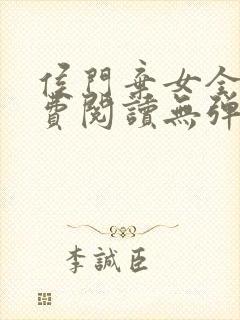 侯門棄女全
費閱讀無彈
李誠臣